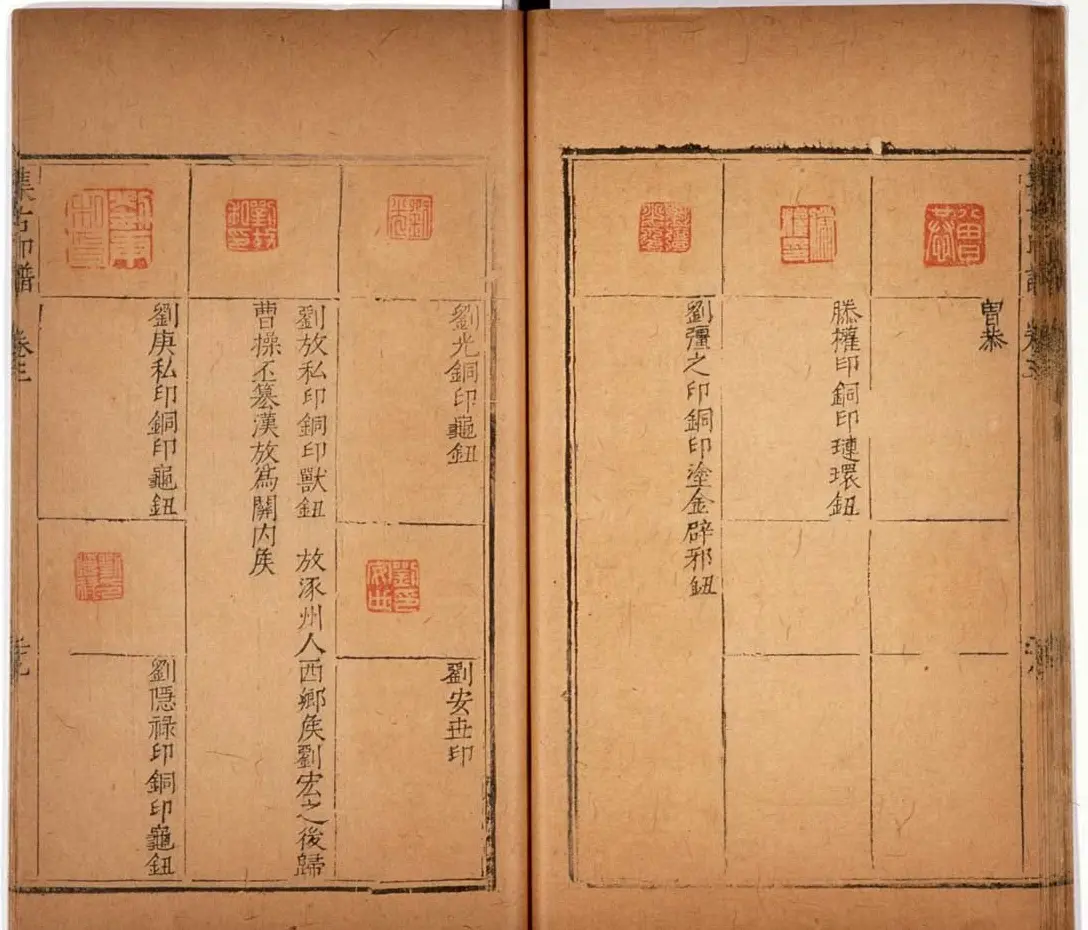 曹恭
滕權印銅印璉環鈕
劉彊之印銅印塗金辟邪鈕
劉光銅印龜鈕
劉安世印
劉放私印銅印獸鈕　放涿州人西鄉侯劉宏之後歸
曹操丕篡漢放為關內侯
劉庚私印銅印龜鈕
劉隱祿印銅印龜鈕
集古印譜　卷三